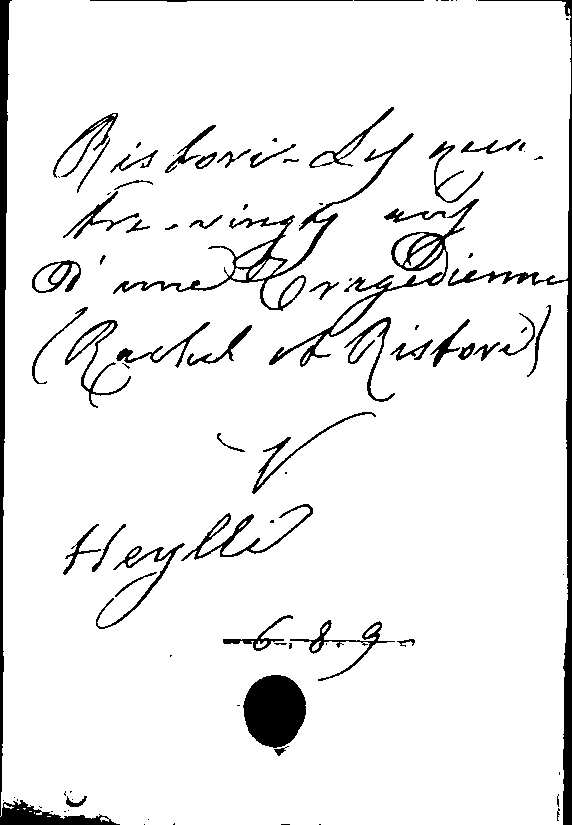 Ristori - Les qua-
tre-vingts ans
d'une Tragédienne
(Rachel et Ristori)
V.
Heylli
6.8.9